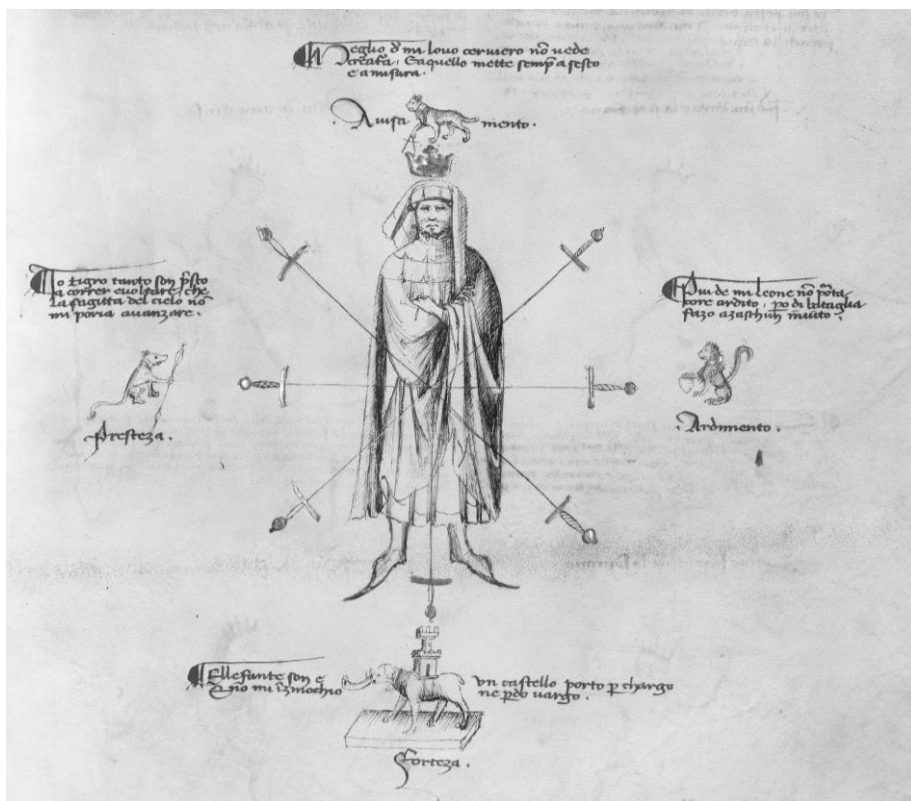 Meglio d̄ mi lovo cerviero nō vede
creatā. E aquello mette semp̄ a sesto
e a misura.
Avisa mento.
Io tigro tanto son p̄sto
a correr e voltare, che
la sagitta del cielo nō
mi poria avanzare.
Presteza.
Piu de mi leone nō p̄ta
core ardito, po di bataglia
fazo a zaschun invito.
Ardimento.
Ellefante son e un castello porto p chargo
E nō mi īzinochio ne p̄do vargo.
Forteza.